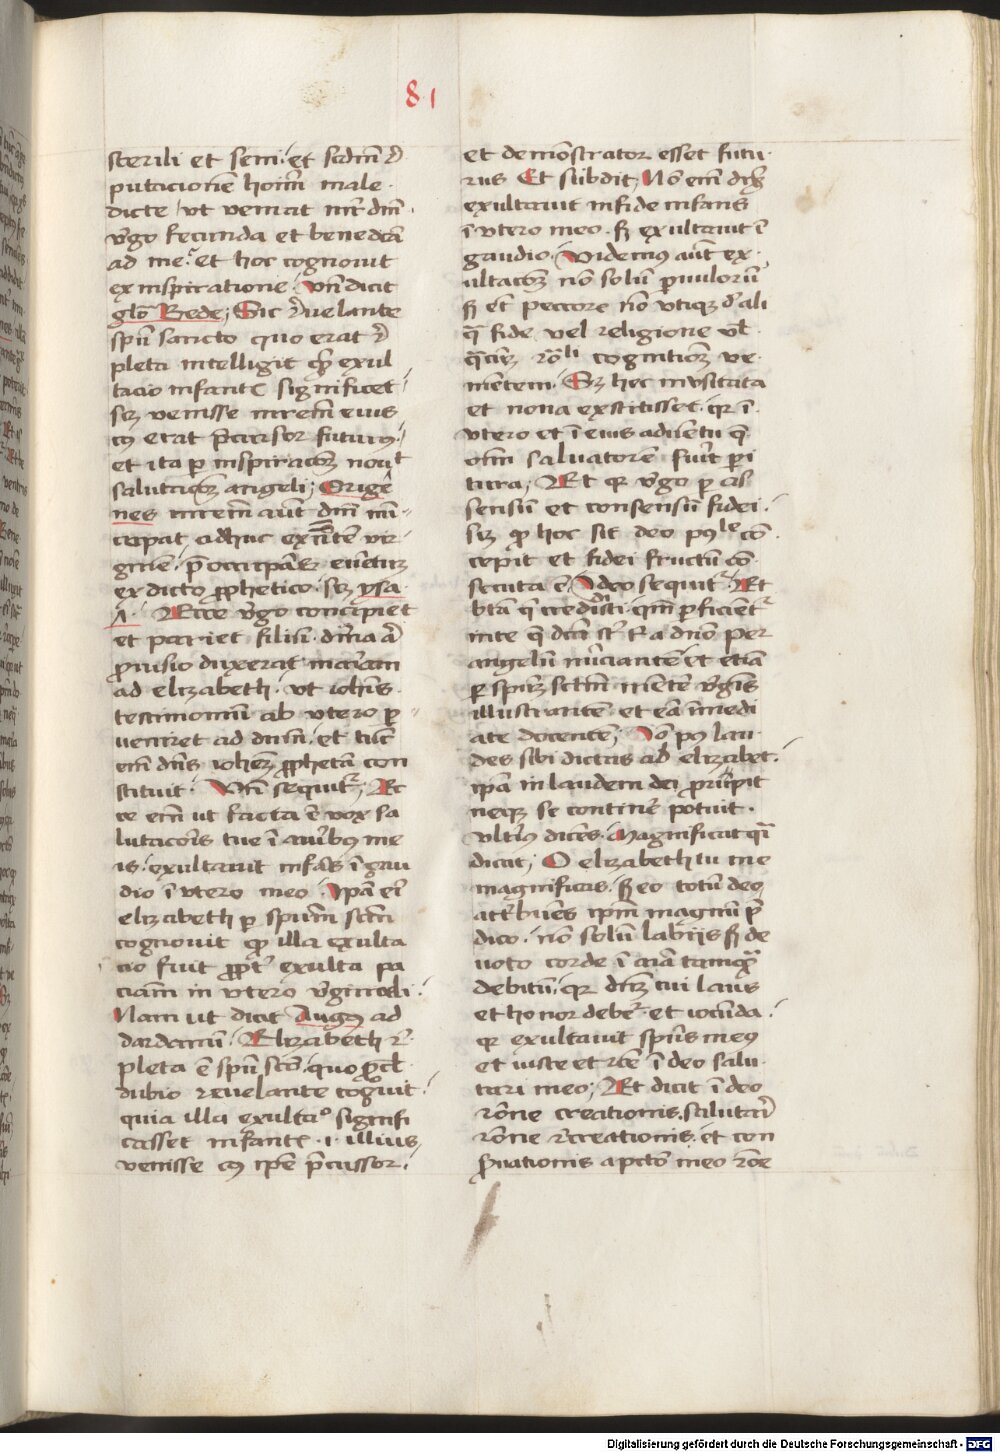 81
sterili et seni · et scdm̄ r̄
putacionē hoīm male
dicte / ut veniat mr̄ dn̄i
v̓go fecunda et benedcā
ad me · et hoc cognovit
ex inspiratione Vn̄ dicit
glō Bede; Sic r̄velante
spū sancto quo erat r̄
pleta intelligit ꝙ exul
tacio infantꝭ significet
scꝫ venisse mr̄em eius
cꝰ erat p̄cursor futurꝰ
et ita ꝑ inspiracōꝫ novit
salutacōꝫ angeli; Orige
nes mr̄em aūt dn̄i nūc
cupat adhuc exn̄tē vir
ginē · p̄occupās evētū
ex dicto ꝓphetico · scꝫ ysa
Ecce v̓go concipiet
et pariet filiū · dīna
ꝓvisio duxerat mariam
ad elizabeth · ut iohīs
testimoniū ab utero ꝑ
veniret ad dn̄m · et tūc
em̄ dn̄s iohēꝫ ꝓphetā con
stituit · Vn̄ sequit᷑; Ec
ce em̄ ut facta ē vox sa
lutacōis tue ī aurībꝰ me
is · exultavit infās ī gau
dio ī utero meo · Ipā em̄
elizabeth ꝑ spūm sctm̄
cognovit ꝙ illa exulta
cio fuit ꝓpt̓ exulta
in utero v̓ginali
Nam ut dicit Augꝰ ad
dardanū · Elizabeth r̄
pleta ē spū scō · quo ꝓcl
dubio revelante cogͦvit
quia illa exultaͦ signifi
casset infantꝭ · i · illius
venisse cꝰ ipē p̄cussor
et demōstrator esset futu
rus Et subdit; Nō em̄ dix͛
exultavit in fide infans
ī utero meo · sꝫ exultavit ī
gaudio · Videmꝰ aūt ex
ultacōꝫ nō solū ꝑvulorū
sꝫ et̄ peccorē nō utiqꝫ d̓ ali
q̄ fide vel religione vl̓
q̄cūqꝫ rōli cognitiōꝫ ve
nientem · Sꝫ hec inusitata
et nova exstitisset · qꝛ ī
utero et ī eius advētu q̄
oīm salvatorē fuit pari
tura; Et qꝛ v̓go ꝑ as
sensū et consensū fidei
scꝫ ꝙ hoc sit deo pꝰˡᵉ cō
cepit et fidei fructū cō
secuta ē Ideo sequit᷑ Et
btā q̄ credidisti · qm̄ ꝑficiēt᷑
in te q̄ dcā st̄ t̄ a dn̄o per
angelū nūciantē et etiā
ꝑ spūꝫ sctm̄ mentē v̓gīs
illustrantē et eā īmedi
ate docente; Iō pꝰ lau
des sibi dictas ab elizabet
ipā in laudem dei ꝓrūpit
neqꝫ se continē potuit
Ulteriꝰ dicēs · Magnificat qͣ
dicat; O elizabeth tu me
magnificas · sꝫ eo totū deo
att̓buēs ipm̄ magnū p̄
dico · nō solū labijs sꝫ de
voto corde ī aīa tamqͣ
debitū · qꝛ dn̄ꝫ tui laus
et honor debet᷑ · et iocūda
qꝛ exultavit spūs meꝰ
et iuste et rcē ī deo salu
tari meo; Et dicit ī deo
rōne creationis · salutari
rōne recreationis · et con
servationis a pctō meo rōe